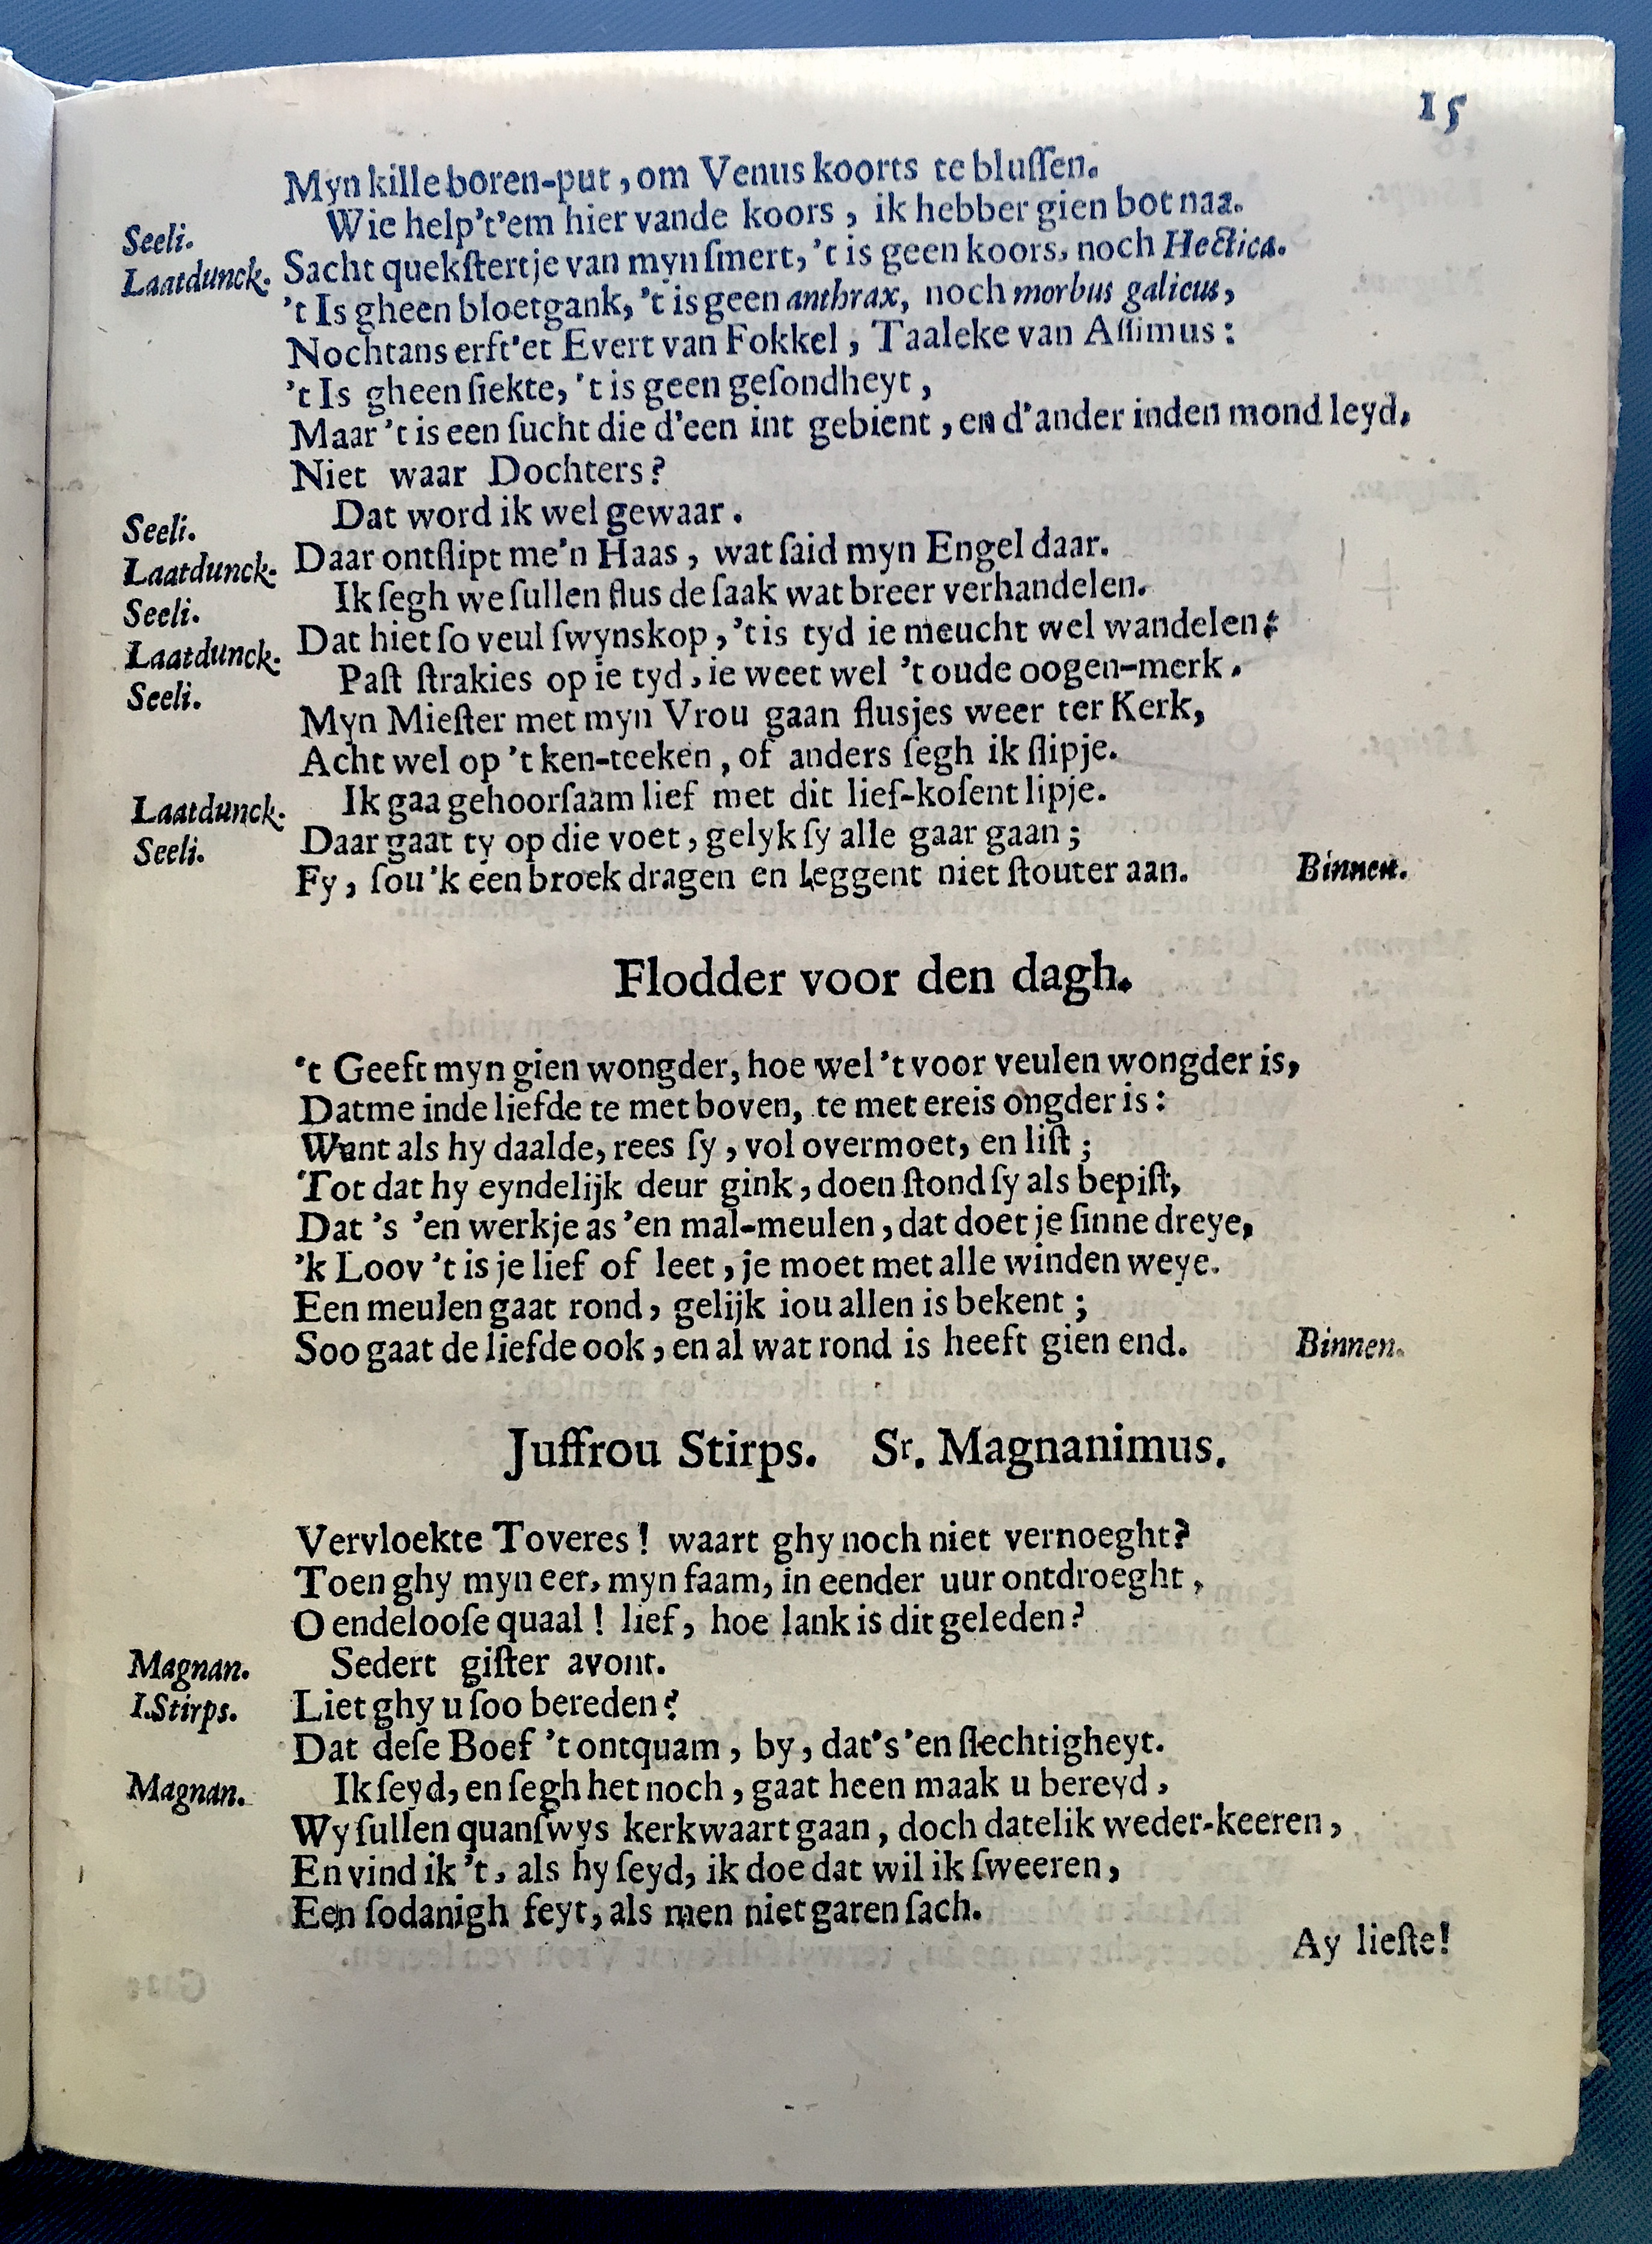 15
Myn kille boren-put, om Venus koorts te bluſſen.
Seeli. Wie help't'em hier vande koors, ik hebber gien bot naa.
Laatdunck. Sacht quekſtertje van myn ſmert, 't is geen koors, noch Hectica.
't Is gheen bloetgank, 't is geen anthrax, noch morbus galicus,
Nochtans erft'et Evert van Fokkel, Taaleke van Aſſimus:
't Is gheen ſiekte, 't is geen geſondheyt,
Maar 't is een ſucht die d'een int gebient, en d'ander inden mond leyd.
Niet waar Dochters?
Seeli. Dat word ik wel gewaar.
Laatdunck. Daar ontſlipt me'n Haas, wat ſaid myn Engel daar.
Seeli. Ik ſegh we ſullen flus de ſaak wat breer verhandelen.
Laatdunck. Dat hiet ſo veul ſwynskop, 't is tyd ie meucht wel wandelen:
Seeli. Paſt ſtrakies op ie tyd, ie weet wel 't oude oogen-merk.
Myn Mieſter met myn Vrou gaan flusjes weer ter Kerk,
Acht wel op 't ken-teeken, of anders ſegh ik ſlipje.
Laatdunck. Ik gaa gehoorſaam lief met dit lief-koſent lipje.
Seeli. Daar gaat ty op die voet, gelyk ſy alle gaar gaan;
Fy, ſou'k een broek dragen en leggent niet ſtouter aan. Binnen.
Flodder voor den dagh.
't Geeft myn gien wongder, hoe wel 't voor veulen wongder is,
Datme inde liefde te met boven, te met ereis ongder is:
Want als hy daalde, rees ſy, vol overmoet, en liſt;
Tot dat hy eyndelijk deur gink, doen ſtond ſy als bepiſt,
Dat 's 'en werkje as 'en mal-meulen, dat doet je ſinne dreye,
'k Loov 't is je lief of leet, je moet met alle winden weye.
Een meulen gaat rond, gelijk iou allen is bekent;
Soo gaat de liefde ook, en al wat rond is heeft gien end. Binnen.
Juffrou Stirps. Sr. Magnanimus.
Vervloekte Toveres! waart ghy noch niet vernoeght?
Toen ghy myn eer, myn faam, in eender uur ontdroeght,
O endelooſe quaal! lief, hoe lank is dit geleden?
Magnan. Sedert giſter avont.
I.Stirps. Liet ghy u ſoo bereden?
Dat deſe Boef 't ontquam, by, dat's 'en ſlechtigheyt.
Magnan. Ik ſeyd, en ſegh het noch, gaat heen maak u bereyd,
Wy ſullen quanſwys kerkwaart gaan, doch datelik weder-keeren,
En vind ik 't, als hy ſeyd, ik doe dat wil ik ſweeren,
Een ſodanigh feyt, als men niet garen ſach.
Ay lieſte!